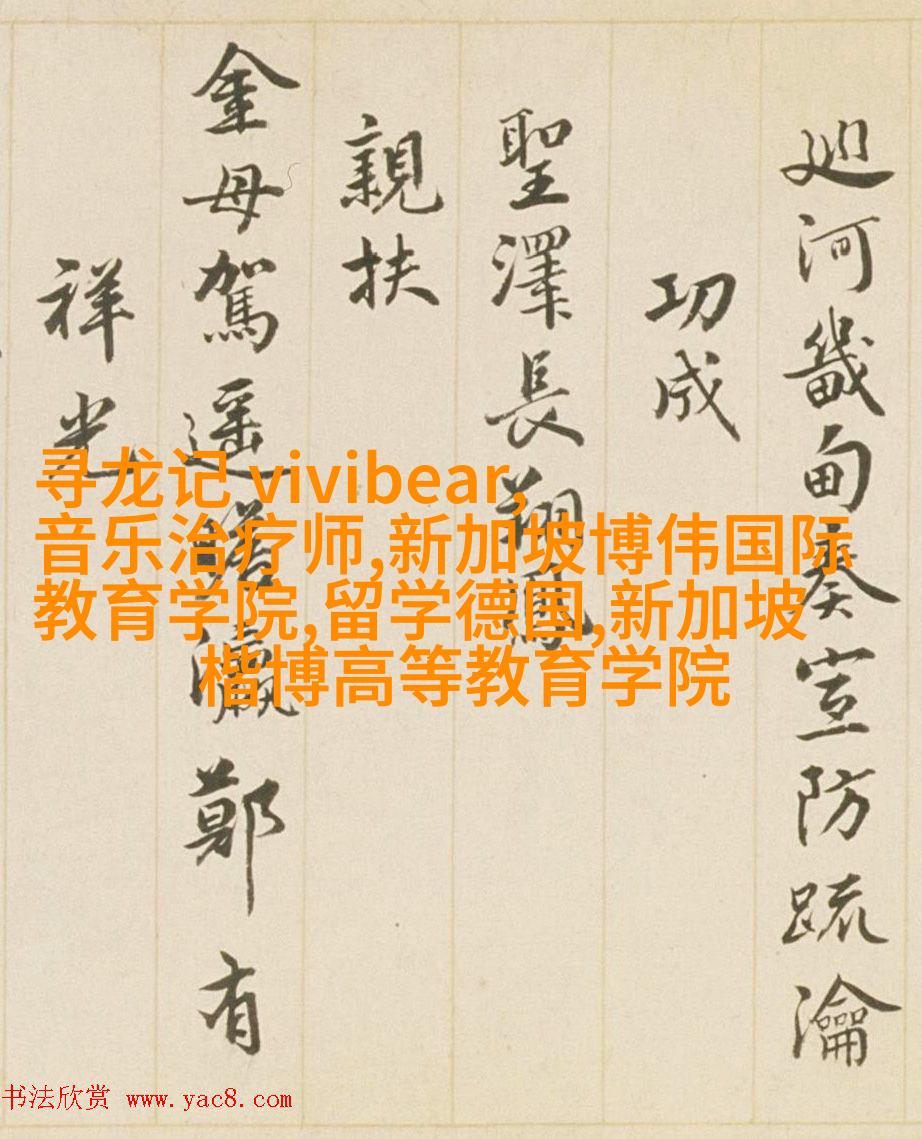 廵河畿甸奏宣防疏瀹
功成
聖澤長翔鳳
親扶
金母駕遥瀛鄭有
祥光
寻龙记 vivibear,
音乐治疗师,新加坡博伟国际
教育学院,留学德国,新加坡
楷博高等教育学院
书法欣赏 www.yac8.com